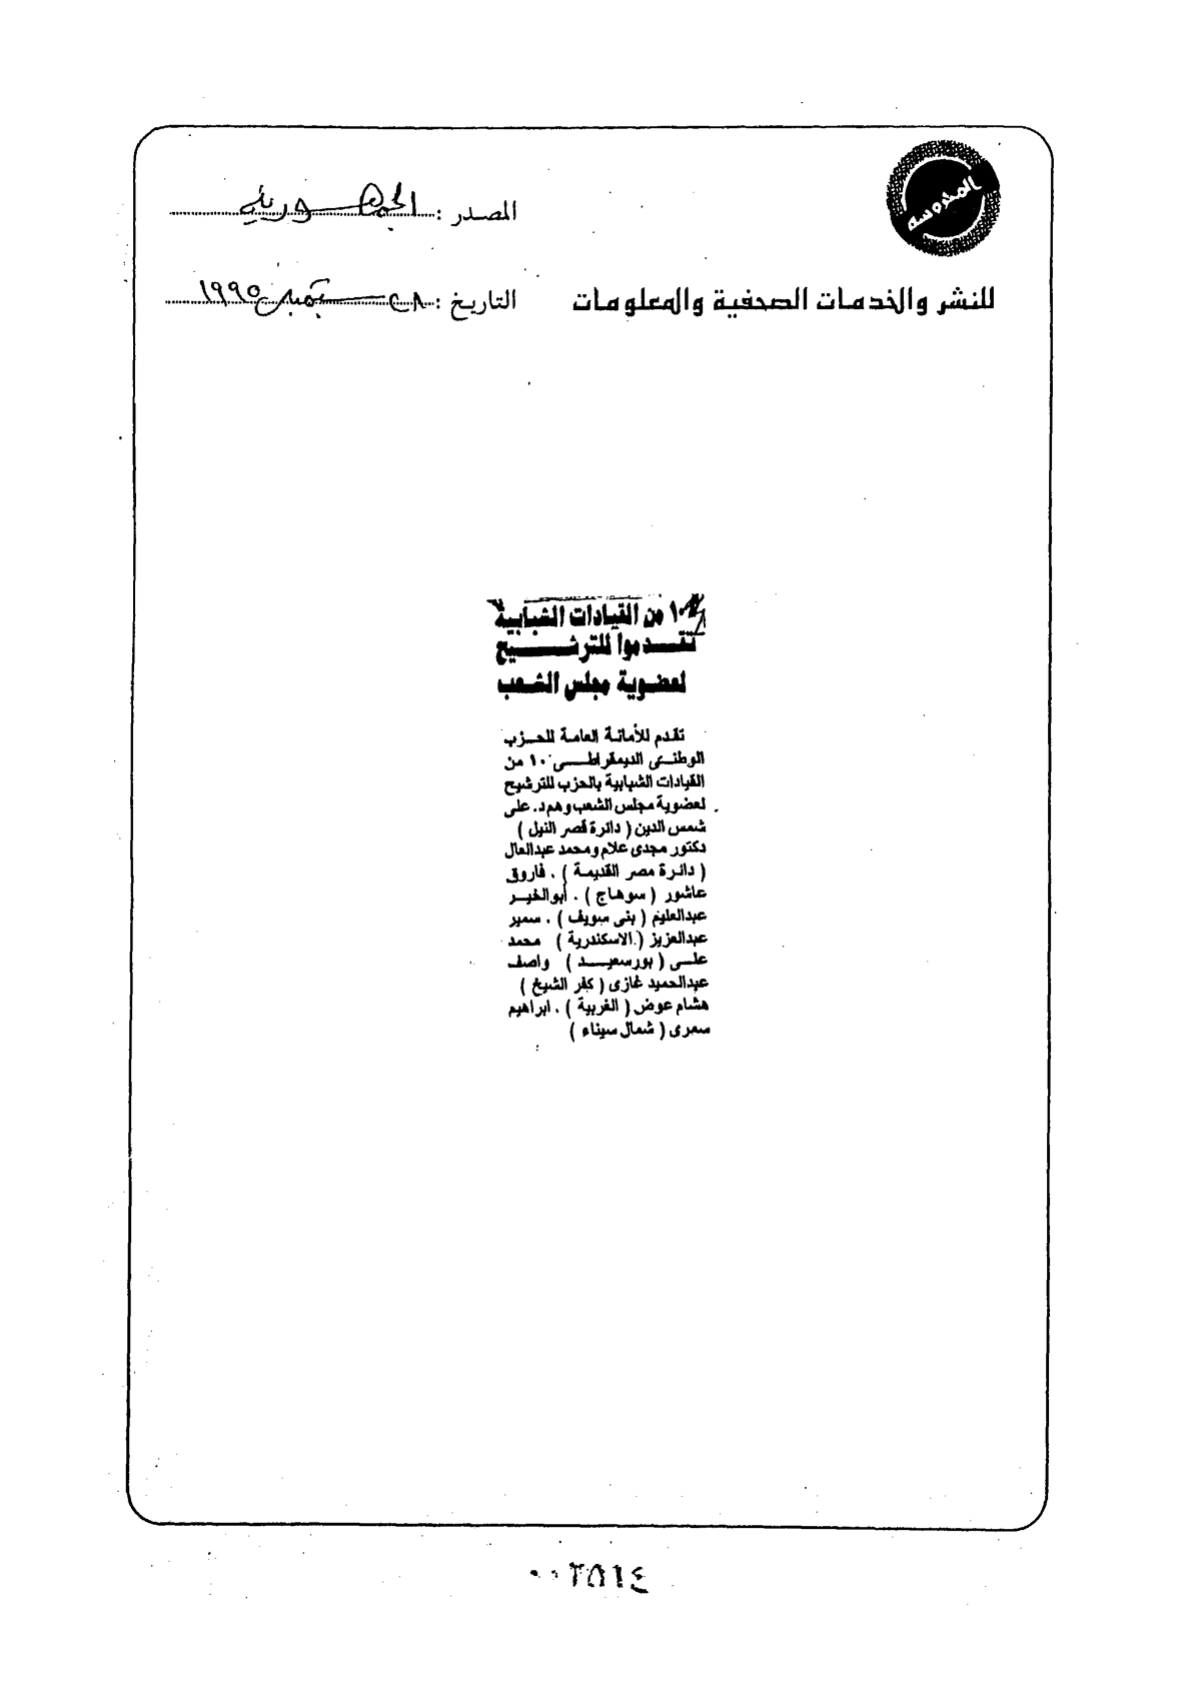 المحروسة
المصدر : الجمهورية
للنشر والخدمات الصحفية والمعلومات
التاريخ : ٢٨ سبتمبر ١٩٩٥
١٠ من القيادات الشبابية
تقدموا للترشيح
لعضوية مجلس الشعب
تقدم للأمانة العامة للحزب
الوطنى الديمقراطى ١٠ من
القيادات الشبابية بالحزب للترشيح
لعضوية مجلس الشعب وهم د. على
شمس الدين ( دائرة قصر النيل )
دكتور مجدى علام ومحمد عبدالعال
( دائرة مصر القديمة ) . فاروق
عاشور ( سوهاج ) . أبوالخير
عبدالعليم ( بنى سويف ) . سمير
عبدالعزيز ( الاسكندرية ) محمد
على ( بورسعيد ) واصف
عبدالحميد غازى ( كفر الشيخ )
هشام عوض ( الغربية ) . ابراهيم
سمرى ( شمال سيناء )